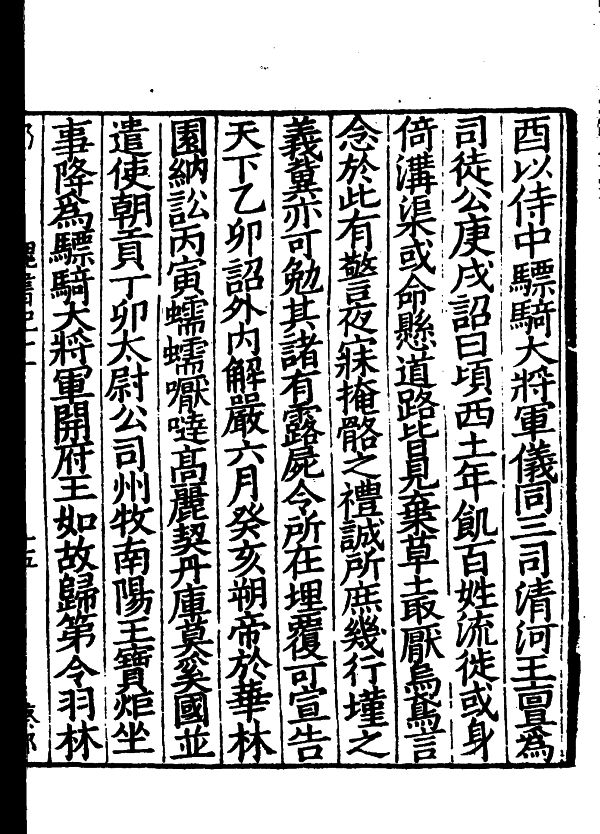 酉以侍中驃騎大將軍儀同三司清河王亶為
司徒公庚戌詔曰頃西土年飢百姓流徙或身
倚溝渠或命懸道路皆見棄草土取厭烏鳶言
念於此有警夜寐掩骼之禮誠所庶幾行墐之
義冀亦可勉其諸有露屍令所在埋覆可宣告
天下乙卯詔外内解嚴六月癸亥朔帝於華林
園納訟丙寅蠕蠕嚈噠高麗契丹庫莫奚國並
遣使朝貢丁卯太尉公司州牧南陽王寶炬坐
事降為驃騎大將軍開府王如故歸第令羽林